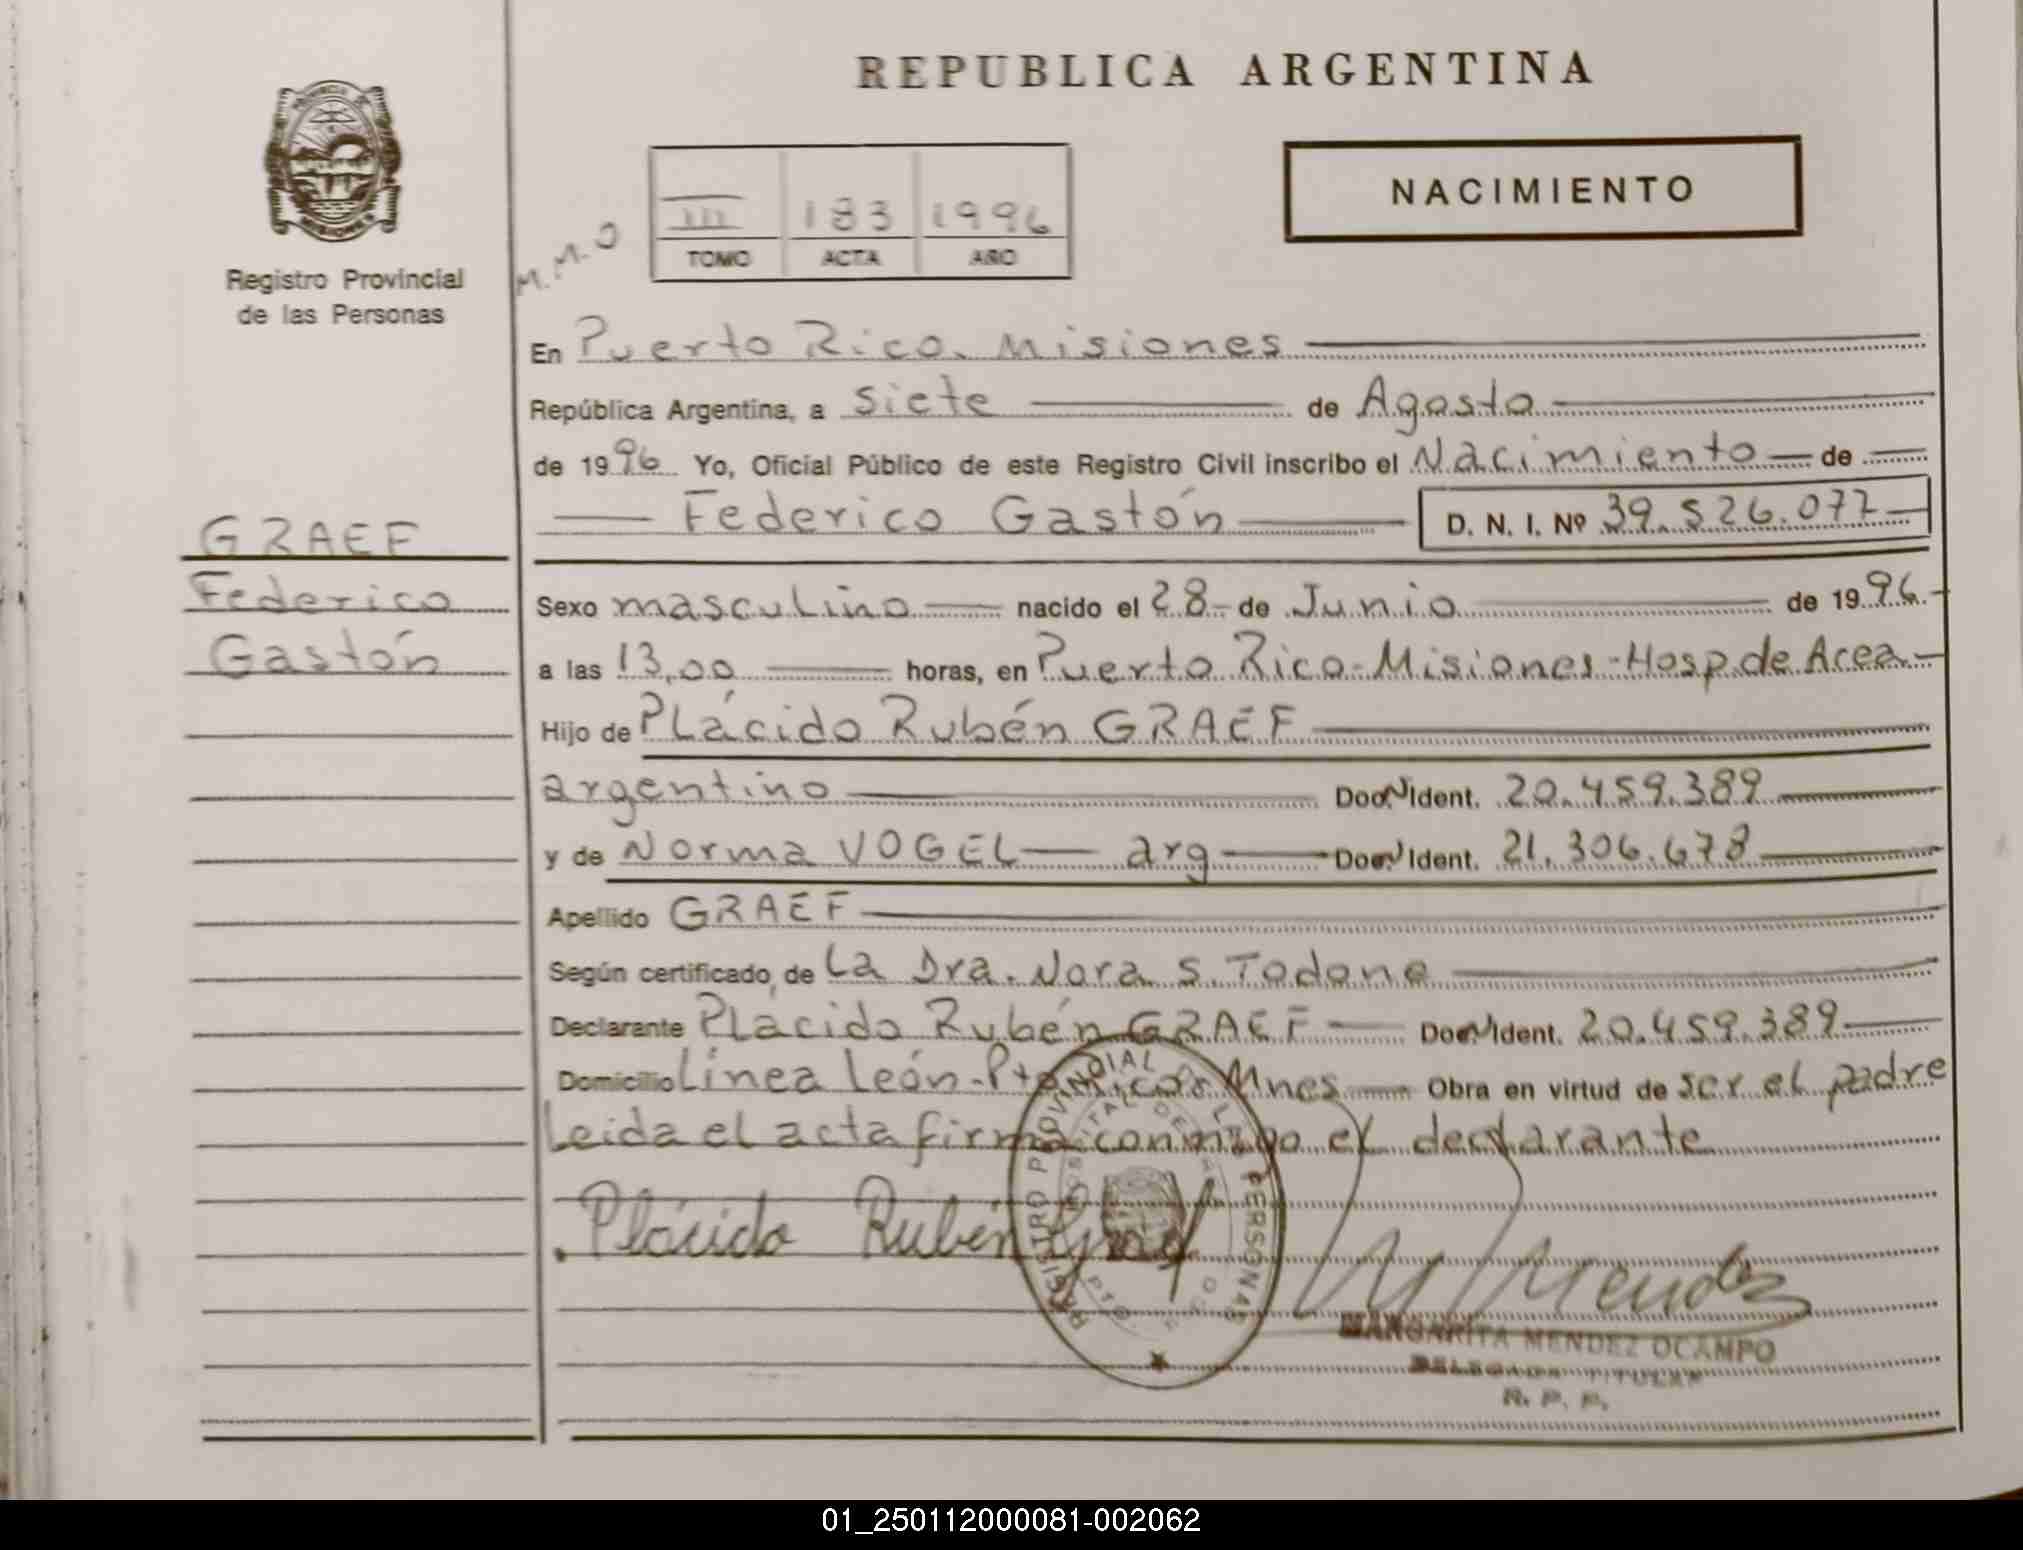 REPUBLICA ARGENTINA
PROVINCIA DE
MISIONES
Registro Provincial
de las Personas
NACIMIENTO
M.M.O
III 183 1996
TOMO ACTA AÑO
En Puerto Rico. Misiones
República Argentina, a siete de Agosto
de 1996 Yo, Oficial Público de este Registro Civil inscribo el Nacimiento de
Federico Gastón D. N. I. Nº 39.526.077
GRAEF
Federico
Gastón
Sexo masculino nacido el 28 de Junio de 1996
a las 13,00 horas, en Puerto Rico-Misiones-Hosp. de Area
Hijo de Plácido Rubén GRAEF
argentino Doc. Ident. 20.459.389
y de Norma VOGEL arg Doc. Ident. 21.306.678
Apellido GRAEF
Según certificado de La Dra. Nora S. Todone
Declarante Placido Rubén GRAEF Doc. Ident. 20.459.389
Domicilio Línea León-Pto Rico Mnes Obra en virtud de ser el padre
Leida el acta firma conmigo el declarante
Plácido Rubén Graef
REGISTRO PROVINCIAL DE LAS PERSONAS
HOSPITAL DE AREA
PTO. RICO
M Mendez
MARGARITA MENDEZ OCAMPO
DELEGADA TITULAR
R. P. P.
01_250112000081-002062